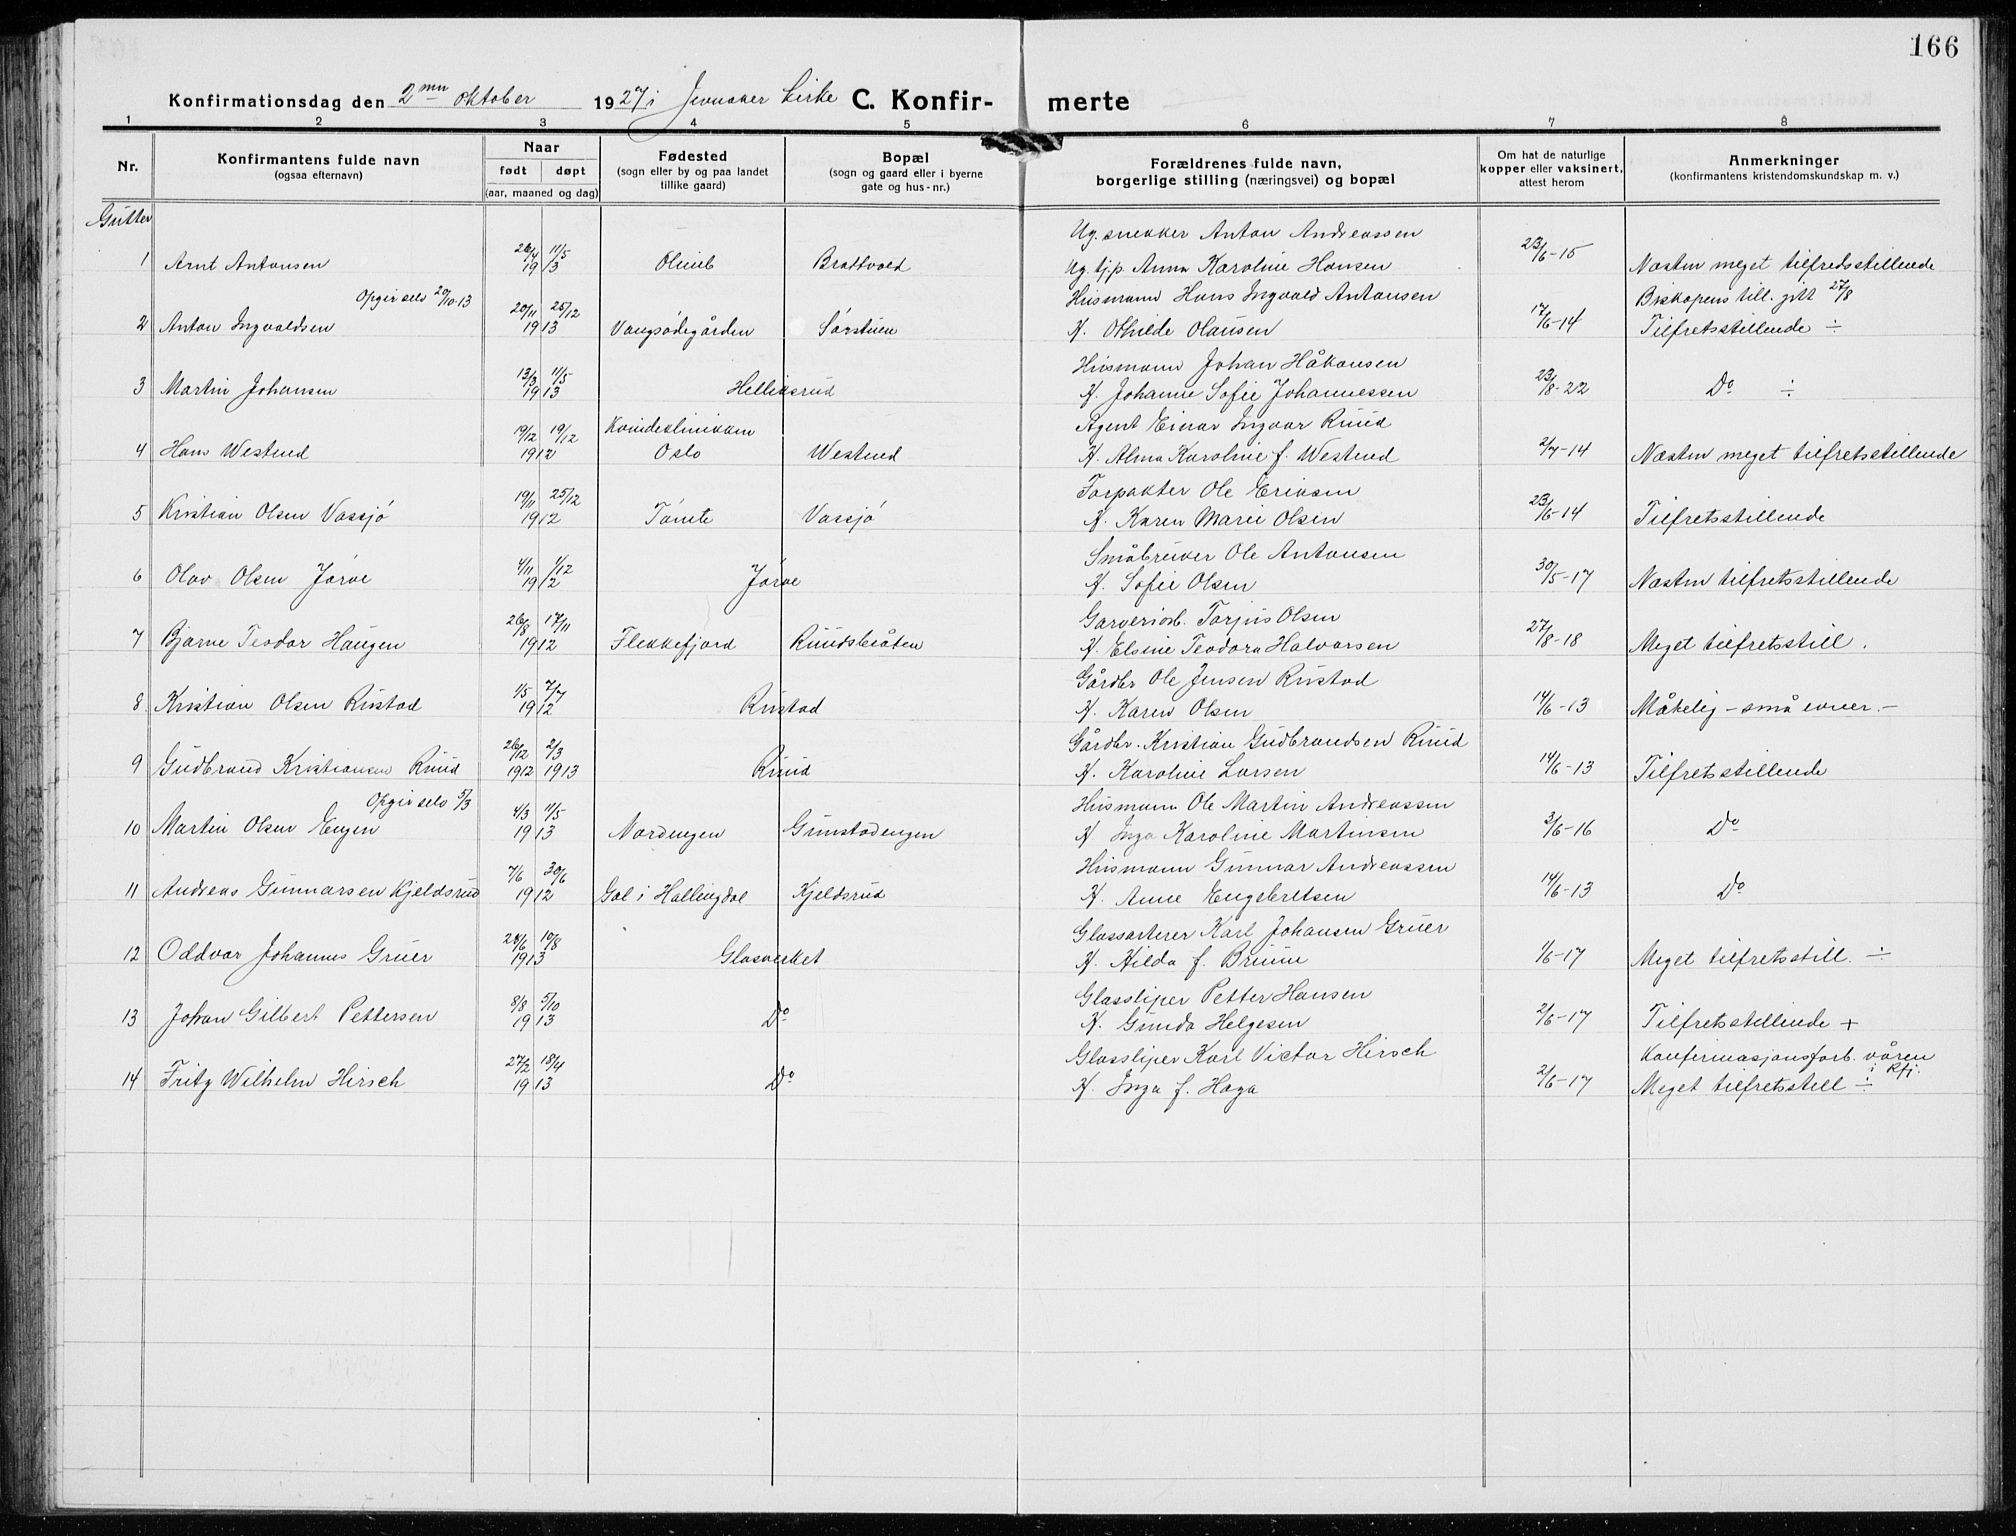 166
Konfirmationsdag den 2den oktober 1927 i Jevnaker kirke C. Konfir- merte
1 2 3 4 5 6 7 8
Nr.
Konfirmantens fulde navn
(ogsaa efternavn)
Naar
født døpt
(aar, maaned og dag)
Fødested
(sogn eller by og paa landet
tillike gaard)
Bopæl
(sogn og gaard eller i byerne
gate og hus-nr.)
Forældrenes fulde navn,
borgerlige stilling (næringsvei) og bopæl
Om hat de naturlige
kopper eller vaksinert,
attest herom
Anmerkninger
(konfirmantens kristendomskundskap m. v.)
Gutter
Ug. snekker Anton Andreassen
1 Arnt Antonsen 26/4 11/5 1913 Olimb Brattvold Ug. tj.p. Anna Karoline Hansen 23/6-15 Næsten meget tilfredsstillende
Opgir selv 20/10-13 Husmann Hans Ingvald Antonsen Biskopens till. gitt 27/8
2 Anton Ingvaldsen 20/11 25/12 1913 Vangsødegården Sørstuen H. Othilde Olausen 17/6-14 Tilfretsstillende ÷
Husmann Johan Håkonsen
3 Martin Johansen 13/3 11/5 1913 Helliksrud H. Johanne Sofie Johannessen 23/8-22 Do ÷
Kvindeklinikken Agent Einar Ingvar Ruud
4 Hans Westend 19/12 19/12 1912 Oslo Westend H. Alma Karoline f. Westend 2/7-14 Næsten meget tilfretsstillende
Forpakter Ole Eriksen
5 Kristian Olsen Vassjø 19/11 25/12 1912 Tømte Vassjø H. Karen Marie Olsen 23/6-14 Tilfretsstillende
Småbruker Ole Antonsen
6 Olav Olsen Jørve 4/11 1/12 1912 Jørve H. Sofie Olsen 30/5-17 Næsten tilfretsstillende
Garveriarb. Torjus Olsen
7 Bjarne Teodor Haugen 26/8 17/11 1912 Flekkefjord Ruudsbråten H. Elsine Teodora Halvorsen 27/8-18 Meget tilfretsstill.
Gårdbr Ole Jensen Rustad
8 Kristian Olsen Rustad 1/5 7/7 1912 Rustad H. Karen Olsen 14/6-13 Måtelig - små evner. -
Gårdbr. Kristian Gudbrandsen Ruud
9 Gudbrand Kristiansen Ruud 26/12 1912 2/3 1913 Ruud H. Karoline Larsen 14/6-13 Tilfretsstillende
Opgir selv 5/3 Husmann Ole Martin Andreassen
10 Martin Olsen Engen 4/3 11/5 1913 Nordengen Grinstadengen H. Inga Karoline Martinsen 3/6-16 Do
Husmann Gunnar Andreassen
11 Andreas Gunnarsen Kjeldsrud 7/6 30/6 1912 Gol i Hallingdal Kjeldsrud H. Anne Engebretsen 14/6-13 Do
Glassorterer Karl Johansen Gruer
12 Oddvar Johannes Gruer 24/6 10/8 1913 Glasverket H. Hilda f. Bruun 1/6-17 Meget tilfretsstill. ÷
Glassliper Petter Hansen
13 Johan Gilbert Pettersen 8/8 5/10 1913 Do H. Gunda Helgesen 2/6-17 Tilfretsstillende +
Glassliper Karl Victor Hirsch Konfirmasjonsforb. våren
14 Fritz Wilhelm Hirsch 27/2 18/4 1913 Do H. Inga f. Haga 2/6-17 Meget tilfretsstill ÷